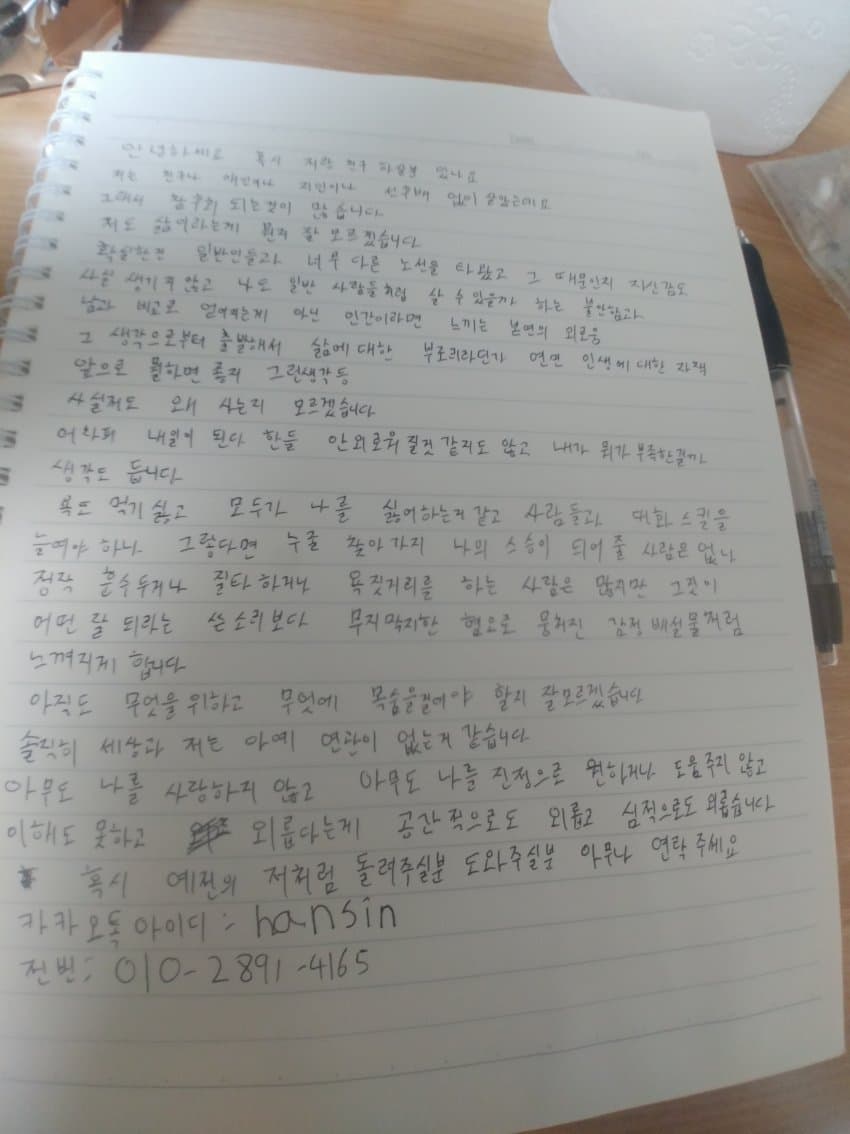 안녕하세요 혹시 저랑 친구 하실분 있나요
저는 친구나 애인이나 지인이나 선후배 없이 살았는데요
그래서 잘 되는것이 많습니다
저도 삶이라는게 뭔지 잘 모르겠습니다
확실한건 일반인들과 너무 다른 노선을 타왔고 그 때문인지 자신감도
사실 생기지 않고 나도 일반 사람들처럼 살 수 있을까 하는 불안함과
남과 비교로 얻어지는게 아닌 인간이라면 느끼는 본연의 외로움
그 생각으로부터 출발해서 삶에 대한 부조리라던가 연연 인생에 대한 자책
앞으로 뭘하면 좋지 그런생각등
사실저도 왜 사는지 모르겠습니다
어차피 내일이 된다 한들 안외로워질것 같지도 않고 내가 뭐가 부족한걸까
생각도 듭니다
욕도 먹기 싫고 모두가 나를 싫어하는거 같고 사람들과 대화 스킬을
늘여야 하나 그렇다면 누굴 찾아가지 나의 스승이 되어 줄 사람은 없나
정작 훈수두거나 질타하거나 욕짓거리를 하는 사람은 많지만 그것이
어떤 잘 되라는 쓴소리보다 무지막지한 혐오로 뭉쳐진 감정 배설물처럼
느껴지게 합니다
아직도 무엇을 위하고 무엇에 목숨을걸어야 할지 잘모르겠습니다
솔직히 세상과 저는 아예 연관이 없는거 같습니다
아무도 나를 사랑하지 않고 아무도 나를 진정으로 원하거나 도움주지 않고
이해도 못하고 외롭다는게 공간적으로도 외롭고 심적으로도 외롭습니다
혹시 예전의 저처럼 돌려주실분 도와주실분 아무나 연락 주세요
카카오톡 아이디 :- hansin
전번: 010-2891-4165